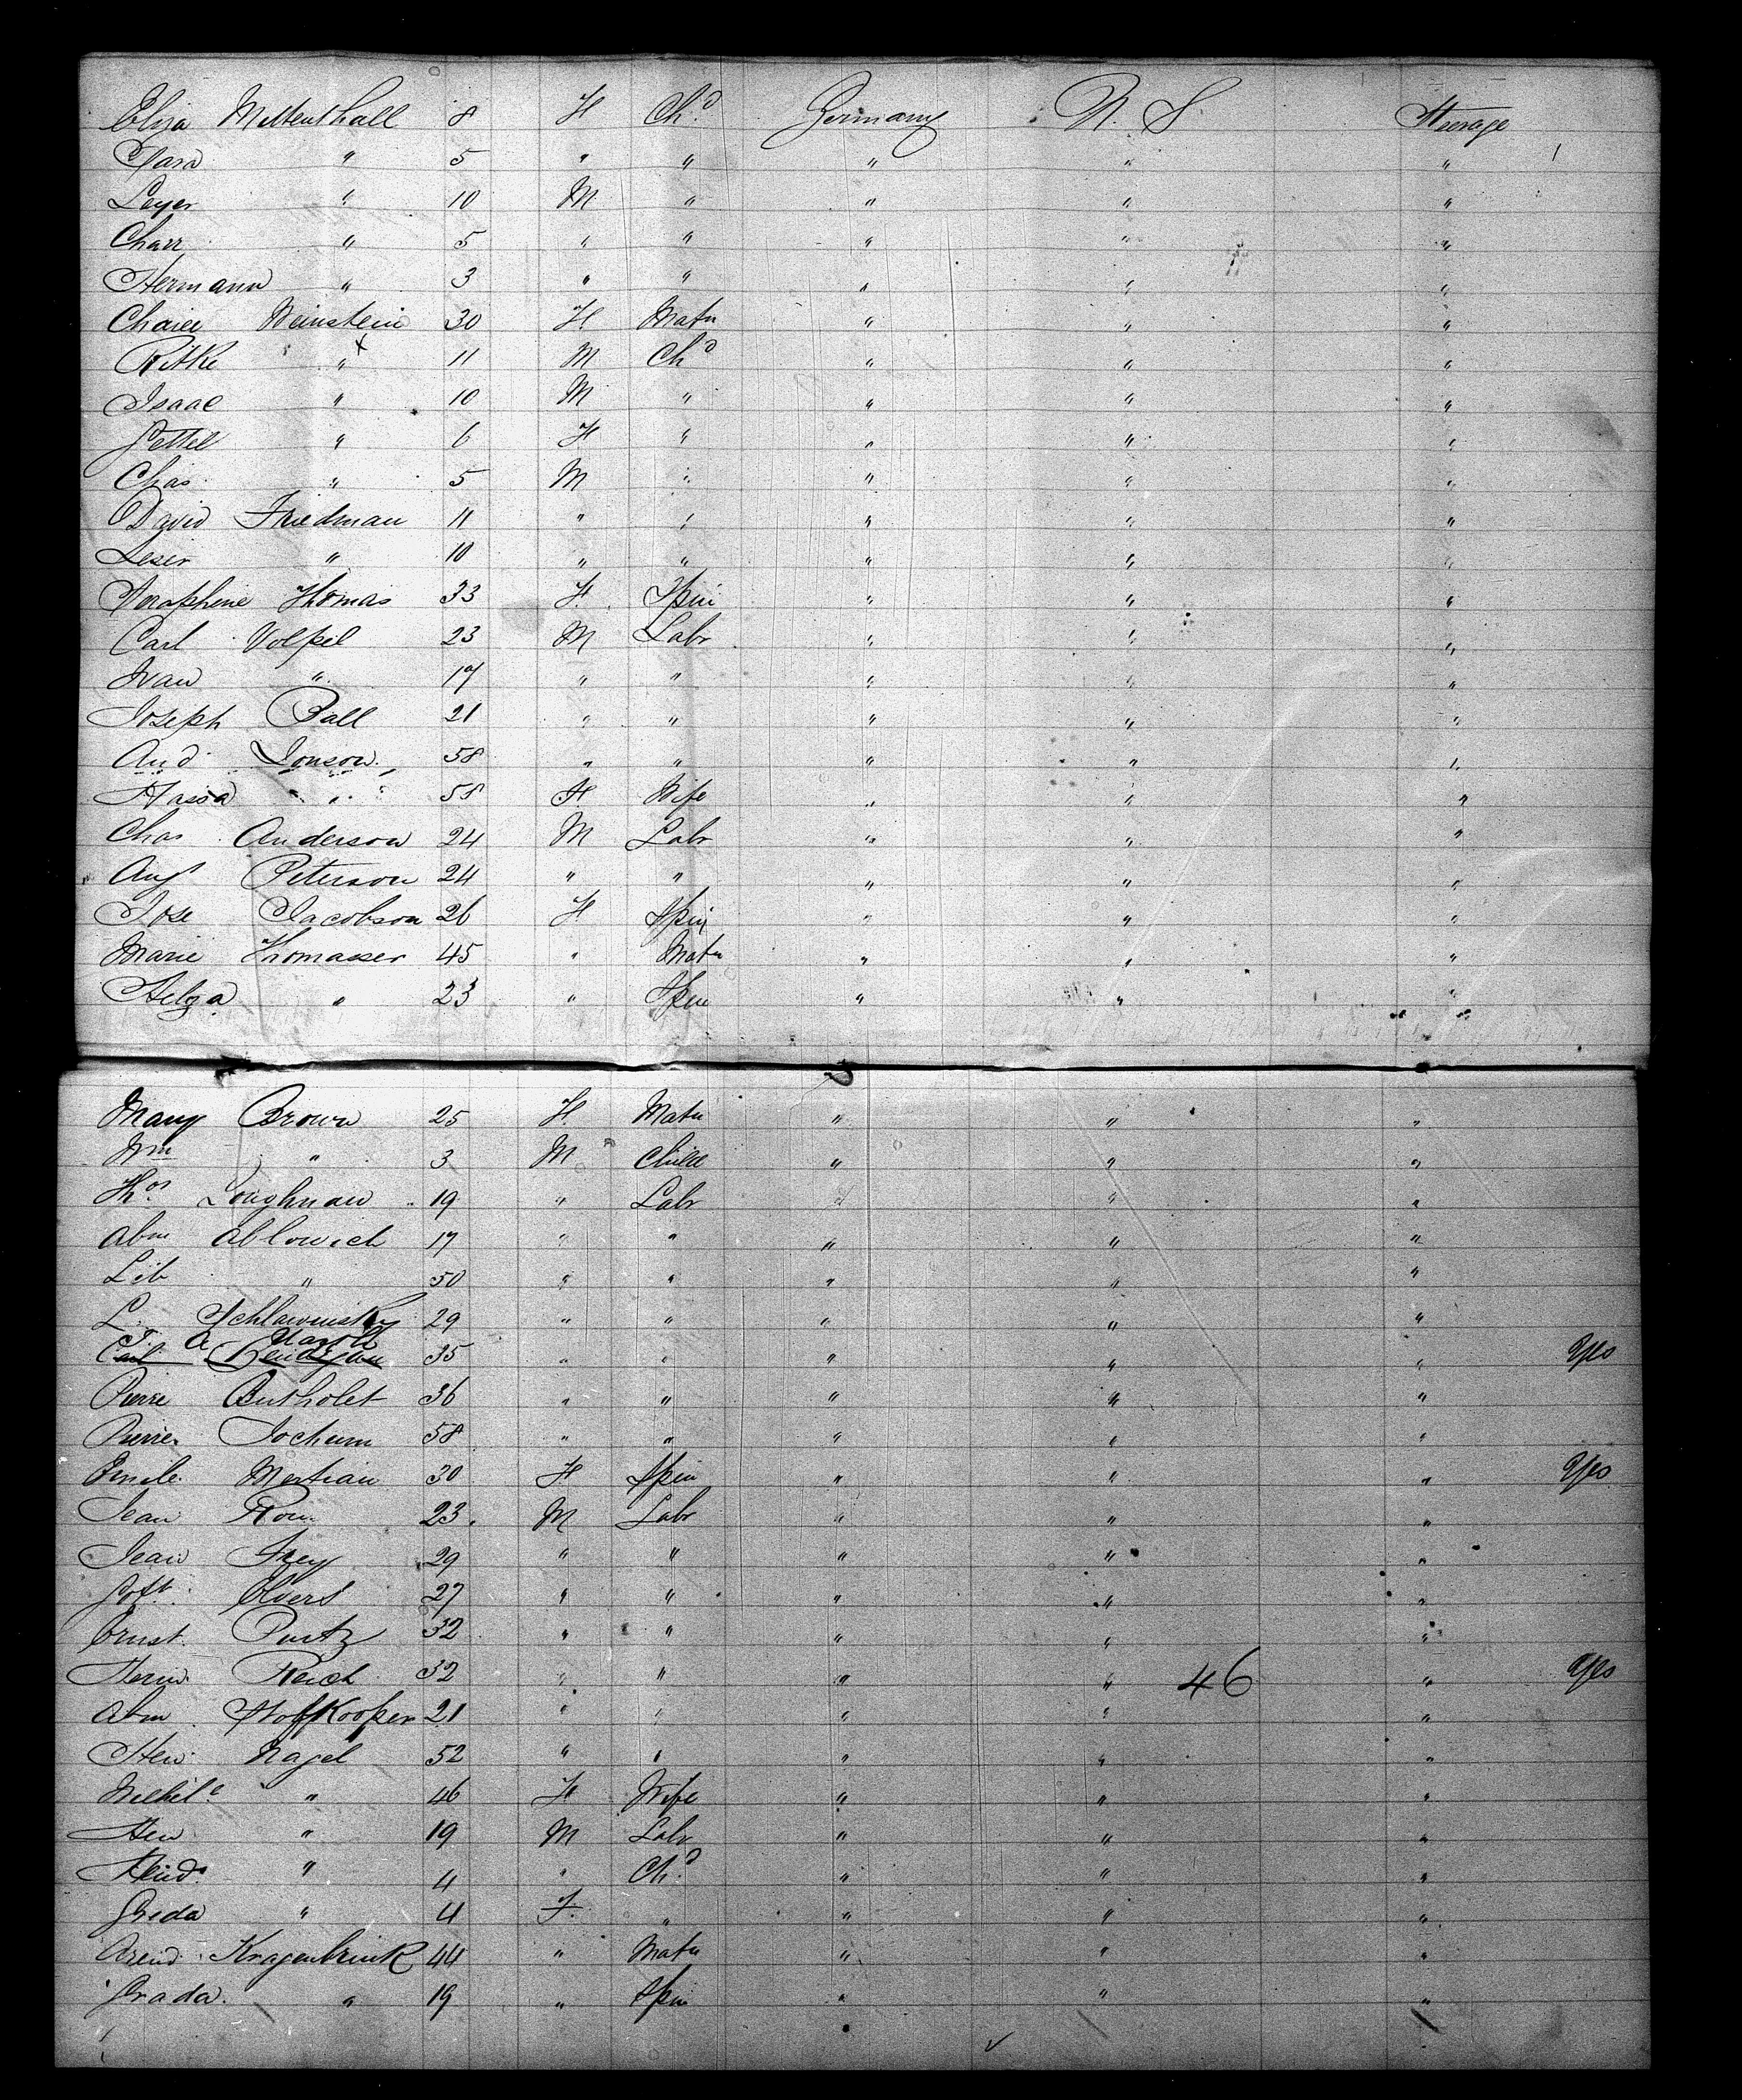 Eliza Mittenthall 8 F Chd Germany U. S. Steerage
Clara " 5 " " " " "
Leyer " 10 M " " " "
Charr " 5 " " " " "
Hermann " 3 " " " " "
Chaiee Weinstein 30 F Matn " " "
Ritke " x 11 M Chd " " "
Isaac " 10 M " " " "
Gettel " 6 F " " " "
Chas " 5 M " " " "
David Friedman 11 " " " " "
Leser " 10 " " " " "
Seraphine Thomas 33 F. Spin " " "
Carl Volpel 23 M Labr " " "
Ivan " 17 " " " " "
Joseph Ball 21 " " " " "
And Jonson 58 " " " " "
Hassa " 58 F Wife " " "
Chas Anderson 24 M Labr " " "
Aug Peterson 24 " " " " "
Jose Jacobson 26 F Spin " " "
Marie Thomasser 45 " Matn " " "
Helga " 23 " Spin " " "
Mary Brown 25 F. Matn " " "
Wm " 3 M Child " " "
Thos Loughnan 19 " Labr " " "
Abm Ablowich 17 " " " " "
Lib " 50 " " " " "
L. Schlawinsky 29 " " " " "
35 " " " " " Yes
Pierre Butholet 36 " " " " "
Pierre Jochum 58 " " " " "
Emile Mertian 30 F Spin " " " Yes
Jean 23 M Labr " " "
Jean Frey 29 " " " " "
Gott. Evers 27 " " " " "
Ernst. Puntz 32 " " " " "
Herm. Reich 32 " " " " 46 " Yes
Abm Hoffkooper 21 " " " " "
Hen Nagel 52 " " " " "
Wilhile " 46 F Wife " " "
Hen " 19 M Labr " " "
Heind " 4 " Chd " " "
Greda " 4 F. " " " "
Arend Kragenbrink 44 " Matn " " "
Grada. " 19 " Spin " " "